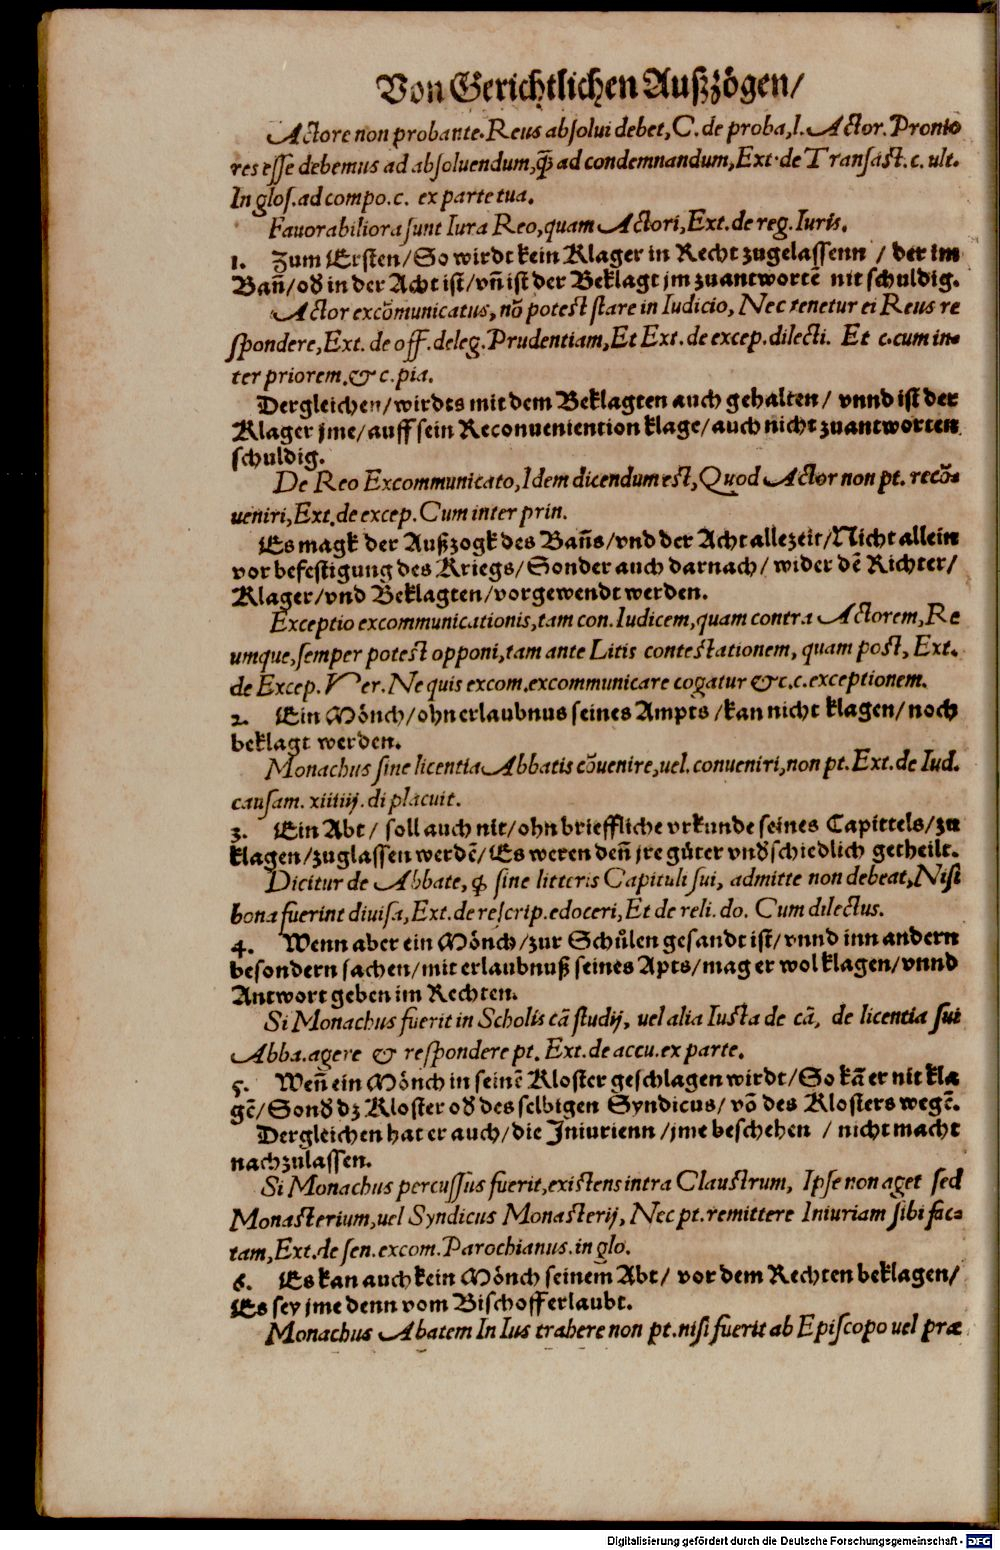 Von Gerichtlichen Außzögen/
Actore non probante. Reus absolui debet, C. de proba, l. Actor. Pronio
res esse debemus ad absoluendum, ꝙ̃ ad condemnandum, Ext. de Transact. c. ult.
In glos. ad compo. c. ex parte tua.
Fauorabiliora sunt Iura Reo, quam Actori, Ext. de reg. Iuris.
1. Zum Ersten/ So wirdt kein Klager in Recht zugelassenn / der im
Bañ/ oð in der Acht ist/ vñ ist der Beklagt jm zuantwortẽ nit schuldig.
Actor excõmunicatus, nõ potest stare in Iudicio, Nec tenetur ei Reus re
spondere, Ext. de off. deleg. Prudentiam, Et Ext. de excep. dilecti. Et c. cum in-
ter priorem. & c. pia.
Dergleichen/ wirdts mit dem Beklagten auch gehalten/ vnnd ist der
Klager jme/ auff sein Reconueniention klage/ auch nicht zuantworten
schuldig.
De Reo Excommunicato, Idem dicendum est, Quod Actor non pt. recõ-
ueniri, Ext. de excep. Cum inter prin.
Es magk der Außzogk des Bañs/ vnd der Acht allezeit/ Nicht allein
vor befestigung des Kriegs/ Sonder auch darnach/ wider dẽ Richter/
Klager/ vnd Beklagten/ vorgewendt werden.
Exceptio excommunicationis, tam con. Iudicem, quam contra Actorem, Re
umque, semper potest opponi, tam ante Litis contestationem, quam post, Ext.
de Excep. Ver. Ne quis excom. excommunicare cogatur &c. c. exceptionem.
2. Ein Mönch/ ohn erlaubnus seines Ampts / kan nicht klagen/ noch
beklagt werden.
Monachus sine licentia Abbatis cõuenire, uel. conueniri, non pt. Ext. de Iud.
causam. xiiiiij. di placuit.
3. Ein Abt / soll auch nit/ ohn brieffliche vrkunde seines Capittels/ zu
klagen/ zuglassen werdẽ/ Es weren deñ jre gůter vnðschiedlich getheilt.
Dicitur de Abbate, ꝙ sine litteris Capituli sui, admitte non debeat, Nisi
bona fuerint diuisa, Ext. de rescrip. edoceri, Et de reli. do. Cum dilectus.
4. Wenn aber ein Mönch/ zur Schůlen gesandt ist/ vnnd inn andern
besondern sachen/ mit erlaubnuß seines Apts/ mag er wol klagen/ vnnd
Antwort geben im Rechten.
Si Monachus fuerit in Scholis cã studij, uel alia Iusta de cã, de licentia sui
Abba. agere & respondere pt. Ext. de accu. ex parte.
5. Weñ ein Mönch in seinẽ Kloster geschlagen wirdt/ So kã er nit kla
gẽ/ Sonð dz Kloster oð desselbigen Syndicus/ võ des Klosters wegẽ.
Dergleichen hat er auch/ die Iniurienn / jme beschehen / nicht macht
nachzulassen.
Si Monachus percussus fuerit, existens intra Claustrum, Ipse non aget sed
Monasterium, uel Syndicus Monasterij, Nec pt. remittere Iniuriam sibi fac-
tam, Ext. de sen. excom. Parochianus. in glo.
6. Es kan auch kein Mönch seinem Abt/ vor dem Rechten beklagen/
Es sey jme denn vom Bischoff erlaubt.
Monachus Abatem In Ius trahere non pt. nisi fuerit ab Episcopo uel præ
Digitalisierung gefördert durch die Deutsche Forschungsgemeinschaft - DFG